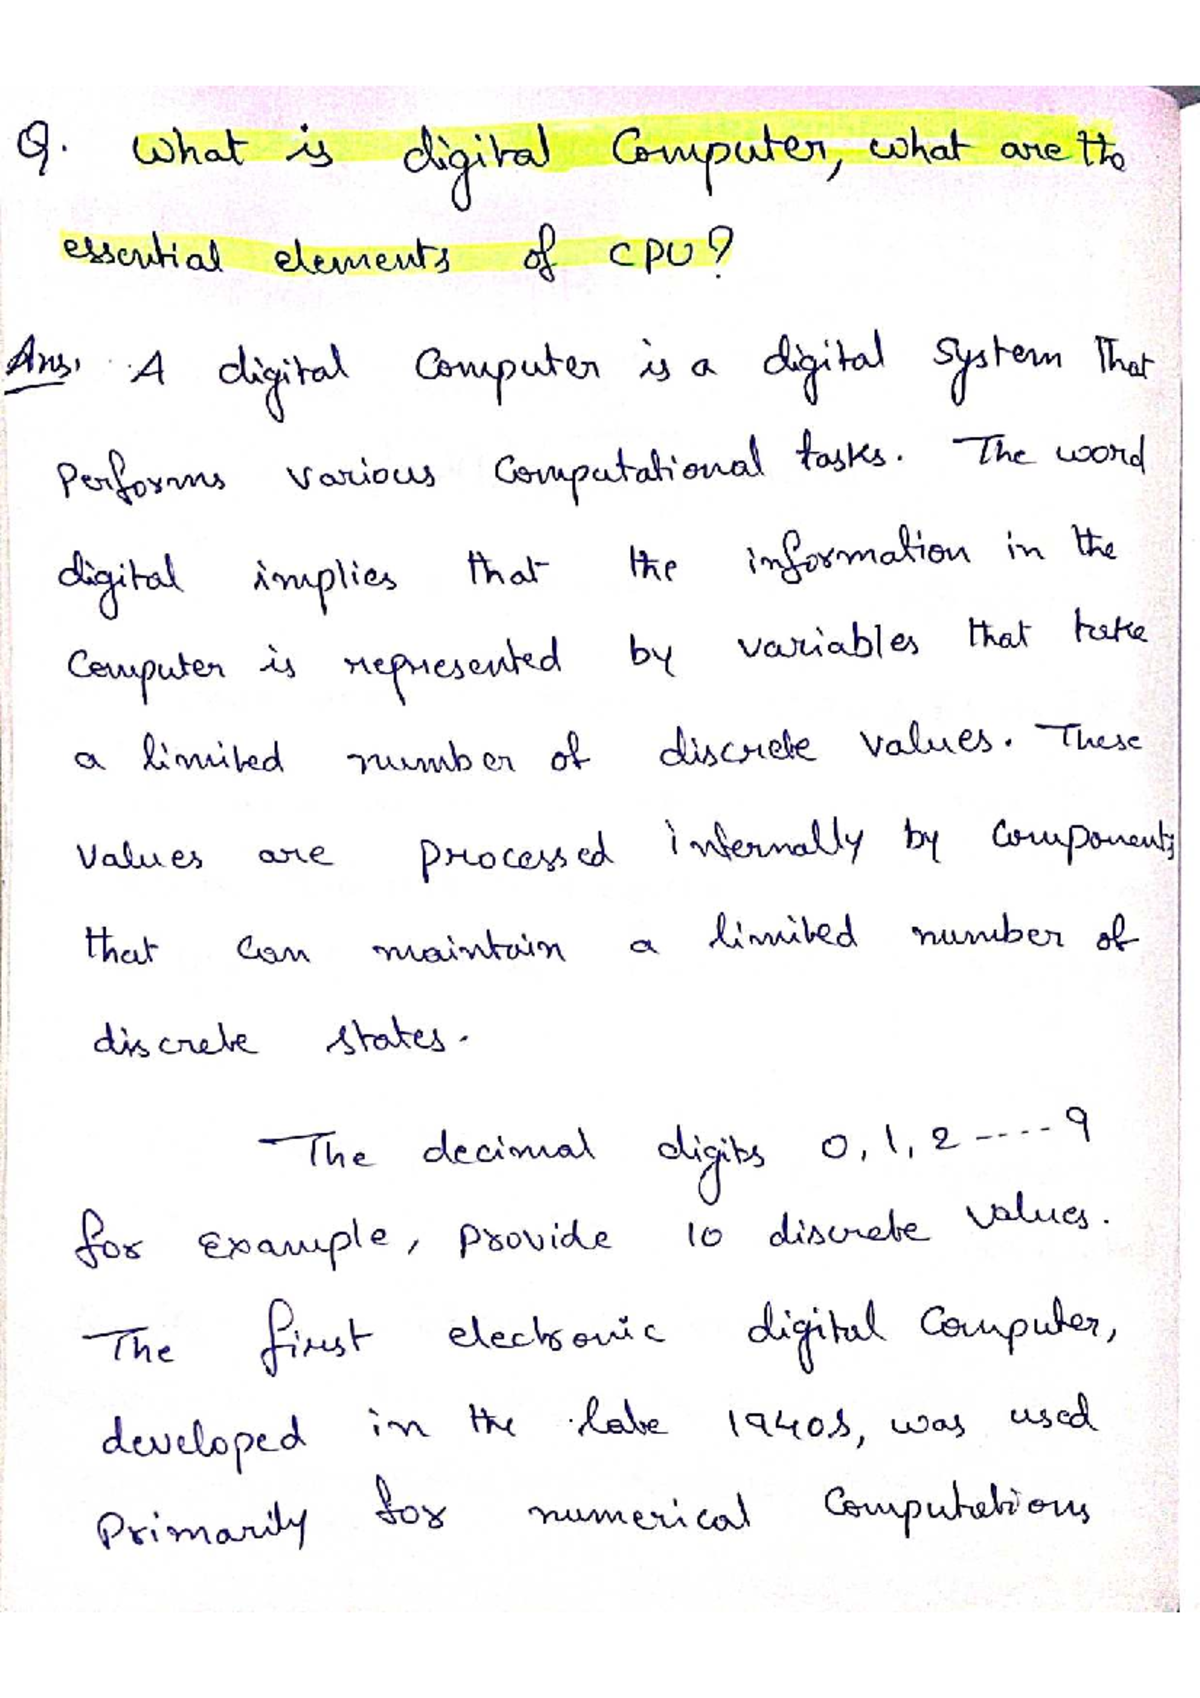 Q. What is digital Computer, what are the
essential elements of CPU?
Ans. A digital Computer is a digital system that
Performs various Computational tasks. The word
digital implies that the information in the
Computer is represented by variables that take
a limited number of discrete values. These
values are processed internally by components
that can maintain a limited number of
discrete states.
The decimal digits 0, 1, 2 ---- 9
for Example, provide 10 discrete values.
The first electronic digital Computer,
developed in the late 1940s, was used
Primarily for numerical Computations